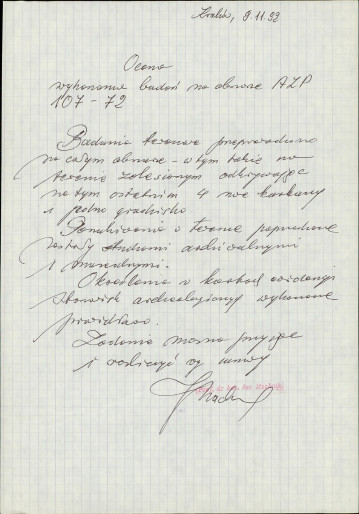 Kraków, 9.11.92
Ocena
wykonania badań na obszarze AZP
107-72
Badania terenowe przeprowadzono
na całym obszarze - w tym także na
terenie zalesionym odkrywając
na tym ostatnim 4 nowe kurhany
i jedno grodzisko
Poszukiwania w terenie poprzedzone
zostały studiami archiwalnymi
i muzealnymi.
Określenia w kartach ewidencji
stanowisk archeologicznych wykonane
prawidłowo.
Zadanie można przyjąć
i rozliczyć wg umowy